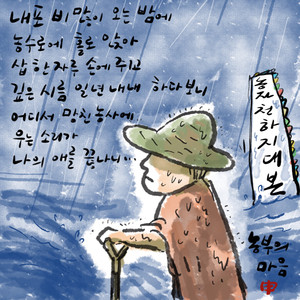 내포 비 많이 오는 밤에
농수로에 홀로 앉아
삽 한자루 손에 쥐고
깊은 시름 일년 내내 하다보니
어디서 망친 농사에
우는 소리가
나의 애를 끊나니...
농자천하지대본
농부의
마음